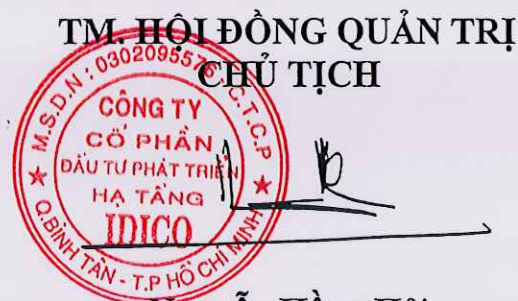 TM. HỘI ĐỒNG QUẢN TRỊ
CHỦ TỊCH
M.S.D.N : 0302095576 - C.T.C.P
CÔNG TY
CỔ PHẦN
ĐẦU TƯ PHÁT TRIỂN
HẠ TẦNG
IDICO
Q.BÌNH TÂN - T.P HỒ CHÍ MINH